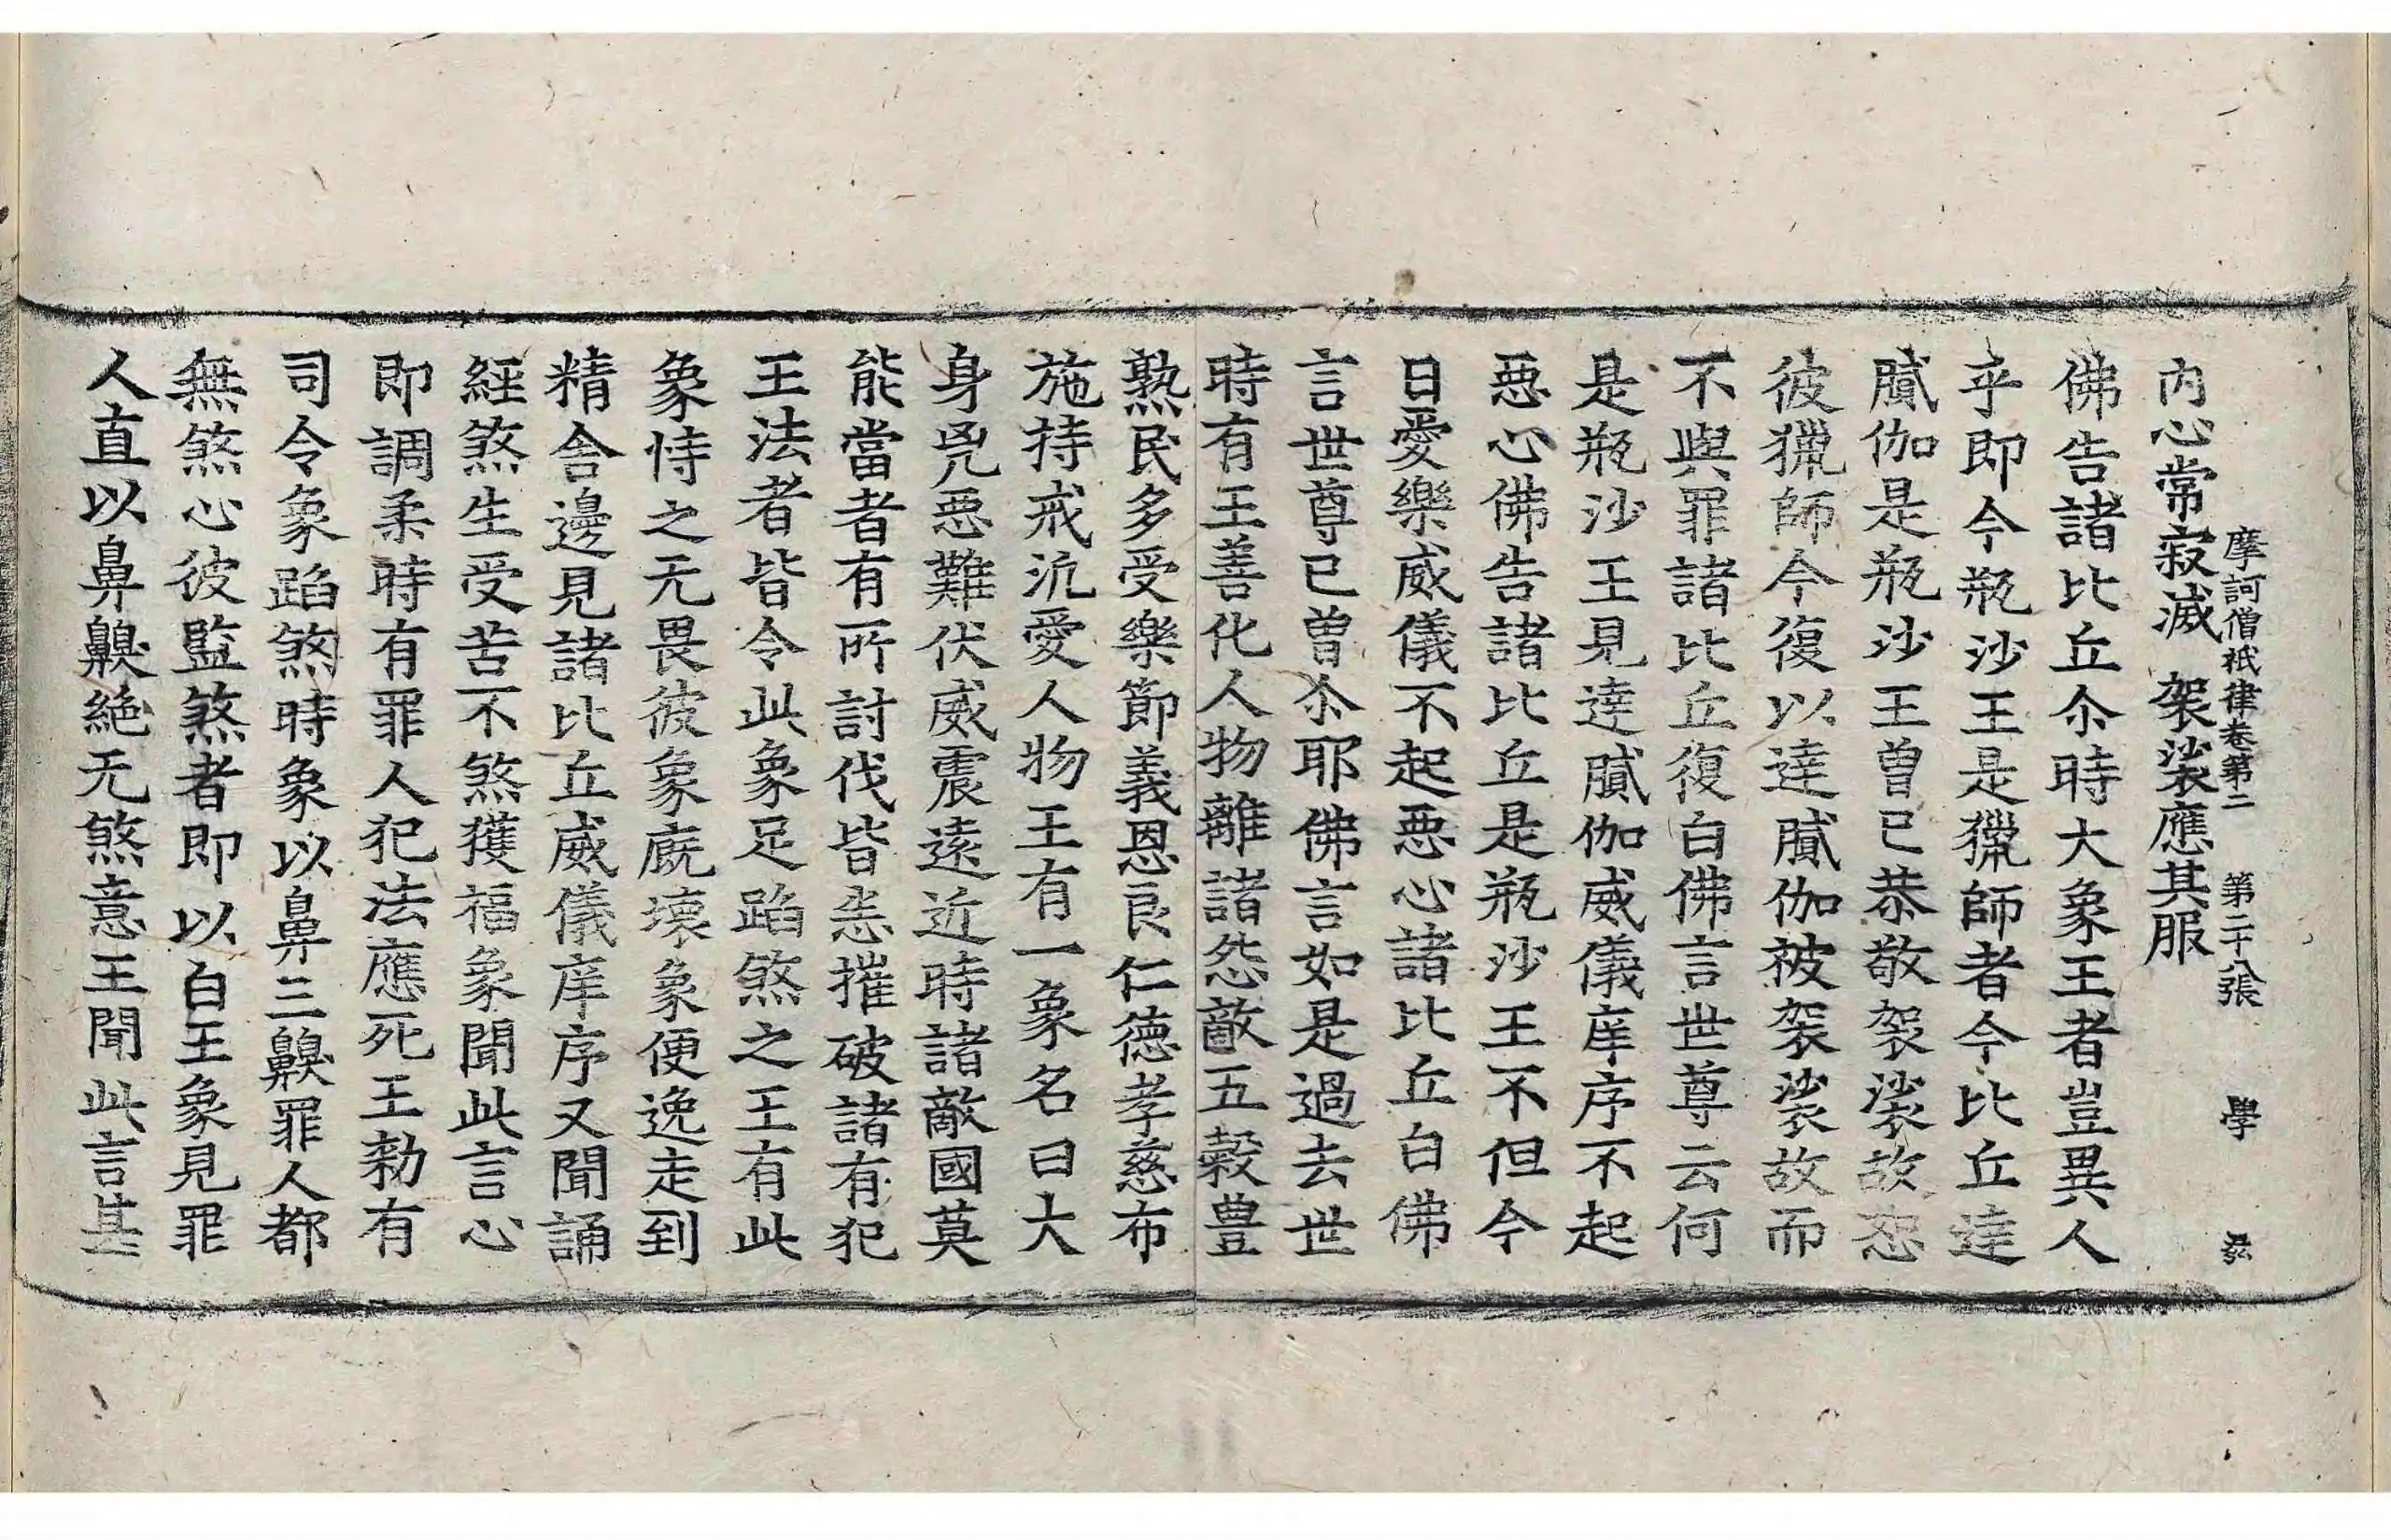 摩訶僧祇律卷第二 第二十八張 學
內心常寂滅 袈裟應其服
佛告諸比丘尒時大象王者豈異人
乎即今瓶沙王是獵師者今比丘達
膩伽是瓶沙王曾已恭敬袈裟故恕
彼獵師今復以達膩伽被袈裟故而
不與罪諸比丘復白佛言世尊云何
是瓶沙王見達膩伽威儀庠序不起
惡心佛告諸比丘是瓶沙王不但今
日愛樂威儀不起惡心諸比丘白佛
言世尊已曾尒耶佛言如是過去世
時有王善化人物離諸怨敵五穀豊
熟民多受樂節義恩良仁德孝慈布
施持戒汎愛人物王有一象名曰大
身兇惡難伏威震遠近時諸敵國莫
能當者有所討伐皆悉摧破諸有犯
王法者皆令此象足蹈煞之王有此
象恃之无畏彼象廐壞象便逸走到
精舍邊見諸比丘威儀庠序又聞誦
經煞生受苦不煞獲福象聞此言心
即調柔時有罪人犯法應死王勑有
司令象蹈煞時象以鼻三齅罪人都
無煞心彼監煞者即以白王象見罪
人直以鼻齅絶无煞意王聞此言甚